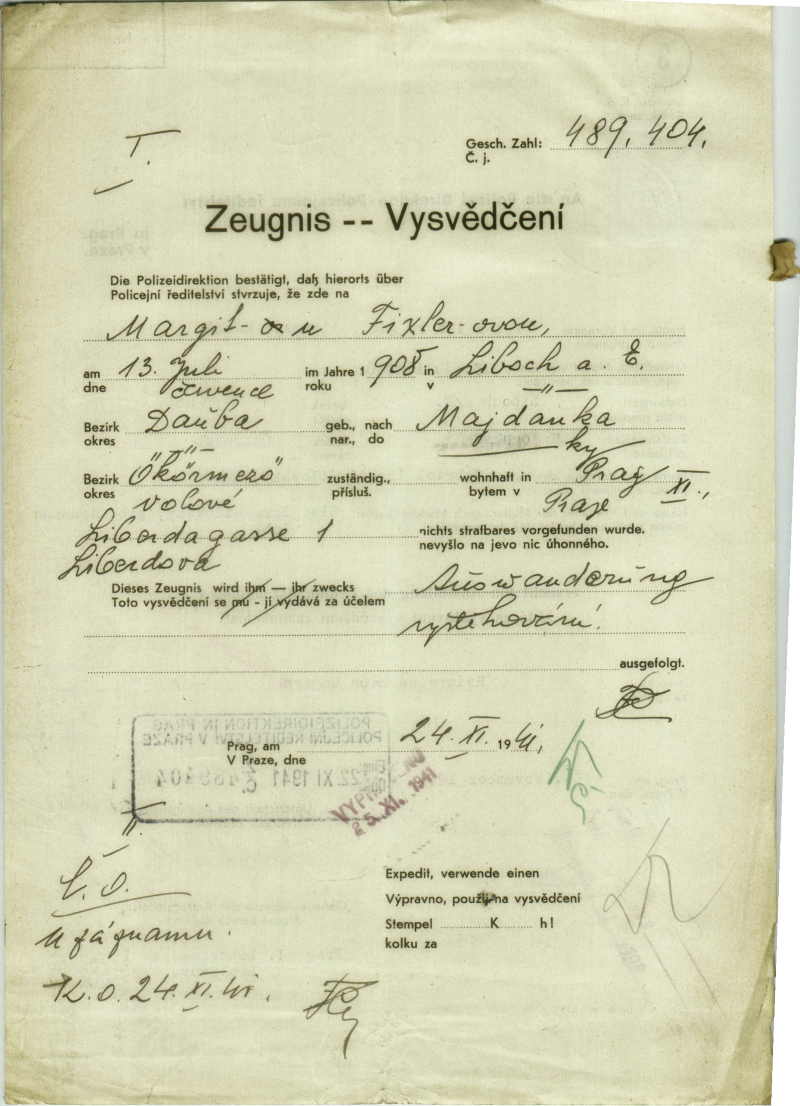 I.
Gesch. Zahl: 489.404.
Č. j.
Zeugnis -- Vysvědčení
Die Polizeidirektion bestätigt, daß hierorts über
Policejní ředitelství stvrzuje, že zde na
Margit- u Fixler-ovou,
am 13. Juli im Jahre 1 908 in Liboch a. E.
dne července roku v -"-
Bezirk Dauba geb., nach Majdanka
okres -"- nar., do ky
Bezirk Ökörmezö zuständig., wohnhaft in Prag XI.,
okres volové přísluš. bytem v Praze
Liberdagasse 1 nichts strafbares vorgefunden wurde.
Liberdova nevyšlo na jevo nic úhonného.
Dieses Zeugnis wird ihm — ihr zwecks Auswanderung
Toto vysvědčení se mu - jí vydává za účelem vystěhování.
ausgefolgt.
POLIZEIDIREKTION IN PRAG
POLICEJNÍ ŘEDITELSTVÍ V PRAZE
22. XI 1941 489404
Prag, am 24. XI. 19 41.
V Praze, dne
25. XI. 1941
II.
Č. o.
K záznamu.
K. o. 24. XI. 41.
Expedit, verwende einen
Výpravno, použij na vysvědčení
Stempel K h!
kolku za